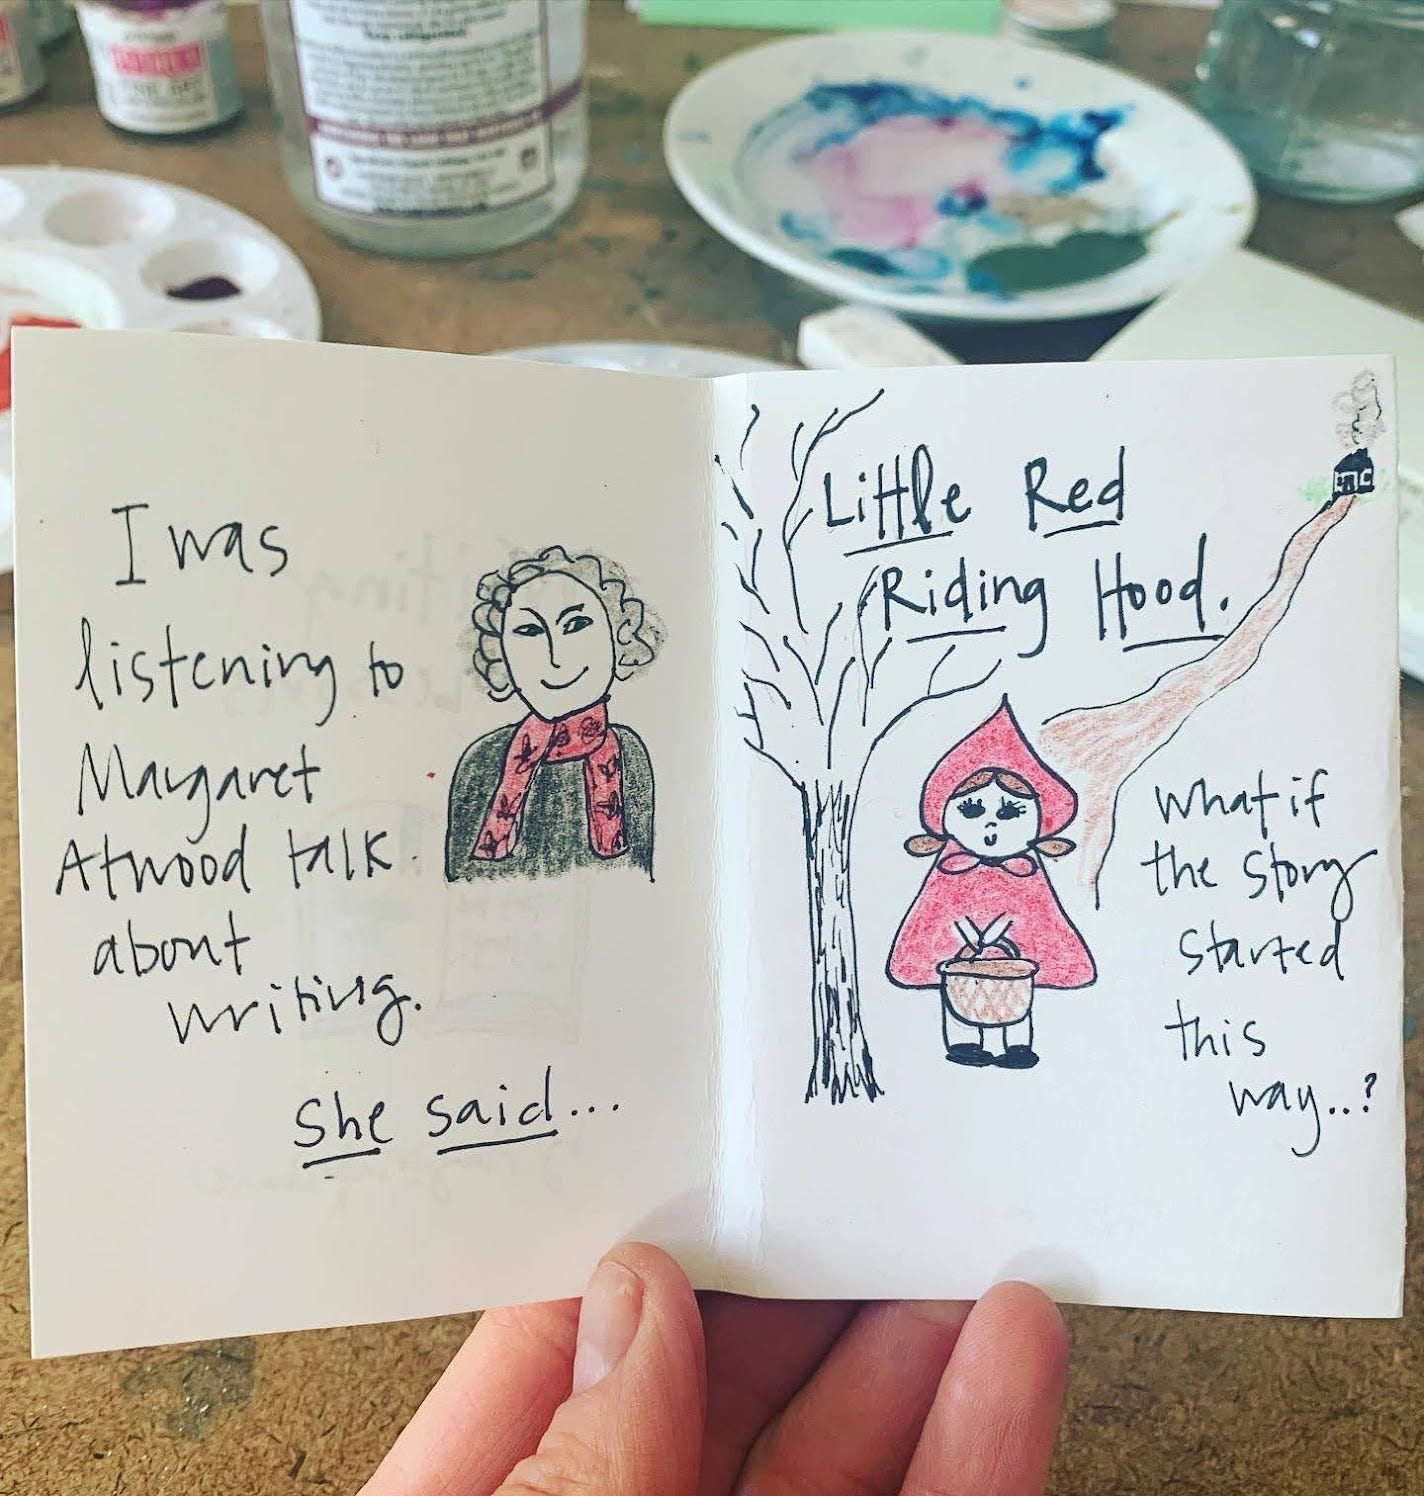 I was
listening to
Margaret
Atwood talk
about
writing.
She said...
Little Red
Riding Hood.
What if
the story
started
this
way...?